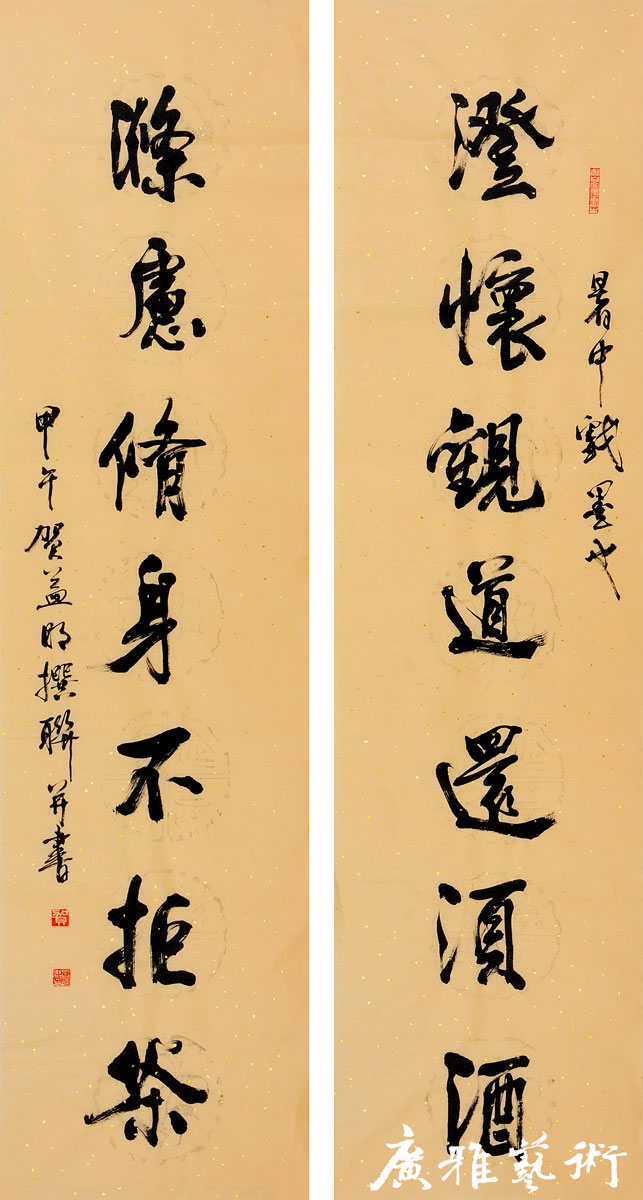 暑中戲墨也
澄懷觀道還湏酒
滌慮脩身不拒茶
甲午賀益明撰聯并書
廣雅藝術